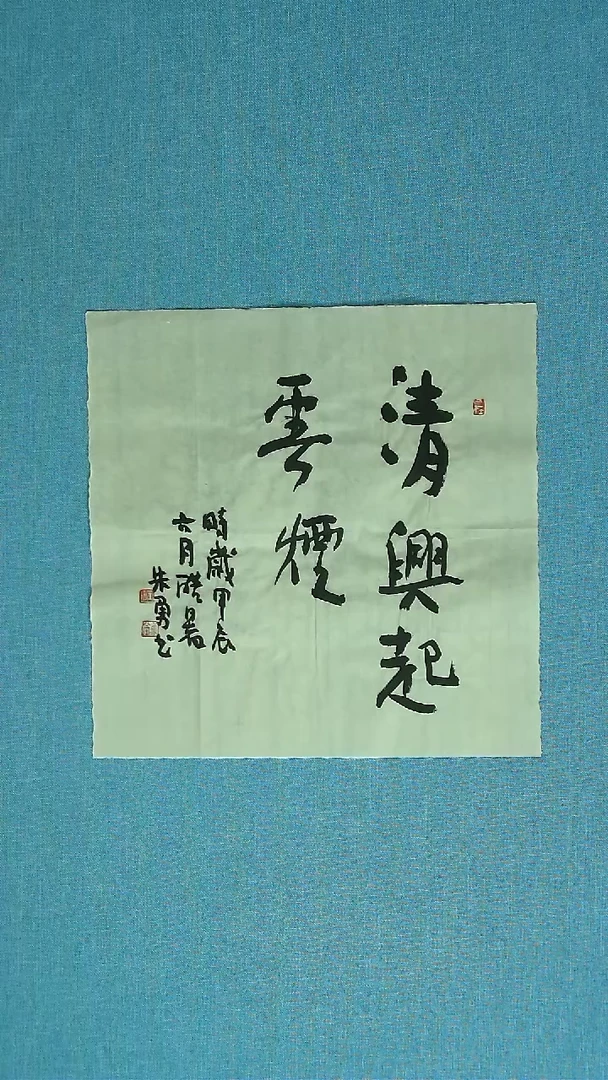 清興起
雲煙
時歲甲辰
六月酷暑
朱勇书